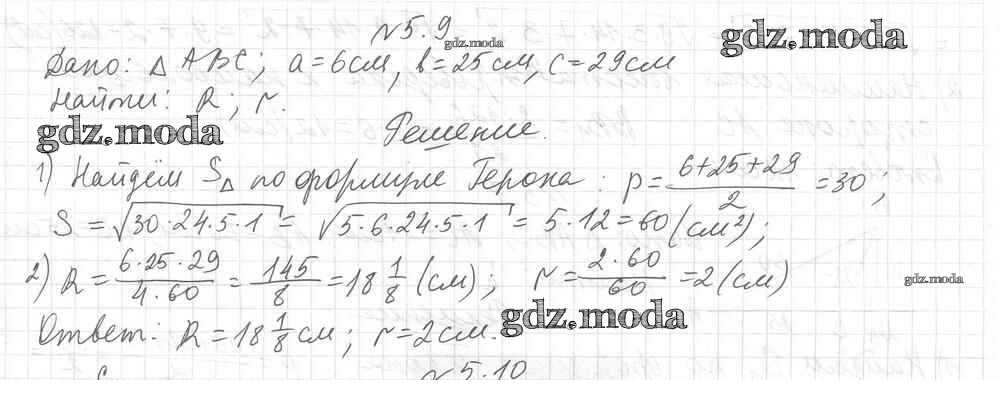 №5.9
gdz.moda
gdz.moda
Дано: △ ABC; a=6см, b=25см, c=29см
Найти: R; r.
gdz.moda
Решение.
1) Найдём S△ по формуле Герона: p=(6+25+29)/2=30;
S=√(30·24·5·1)=√(5·6·24·5·1)=5·12=60(см²);
2) R=(6·25·29)/(4·60)=145/8=18 1/8 (см); r=(2·60)/60=2(см)
gdz.moda
gdz.moda
Ответ: R=18 1/8 см; r=2см.
№5.10